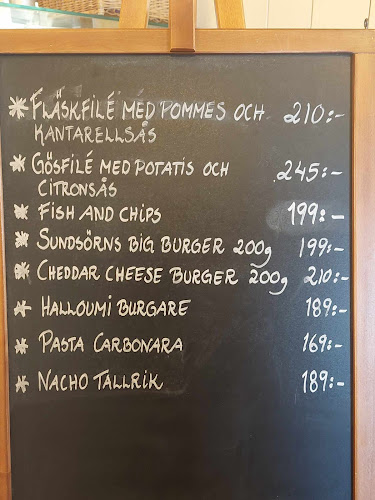 * FLÄSKFILÉ MED POMMES OCH 210:-
KANTARELLSÅS
* GÖSFILÉ MED POTATIS OCH 245:-
CITRONSÅS
* FISH AND CHIPS 199:-
* SUNDSÖRNS BIG BURGER 200g 199:-
* CHEDDAR CHEESE BURGER 200g 210:-
* HALLOUMI BURGARE 189:-
* PASTA CARBONARA 169:-
* NACHO TALLRIK 189:-